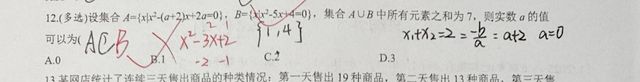 12.(多选)设集合 A={x|x²-(a+2)x+2a=0}, B={x|x²-5x+4=0}, 集合 A∪B 中所有元素之和为 7, 则实数 a 的值
可以为( ACB x²-3x+2 {1,4} x₁+x₂=2=-b/a=a+2 a=0
-2 -1
A.0 B.1 C.2 D.3
13.某网店统计了连续三天售出商品的种类情况: 第一天售出 19 种商品, 第二天售出 13 种商品, 第三天售